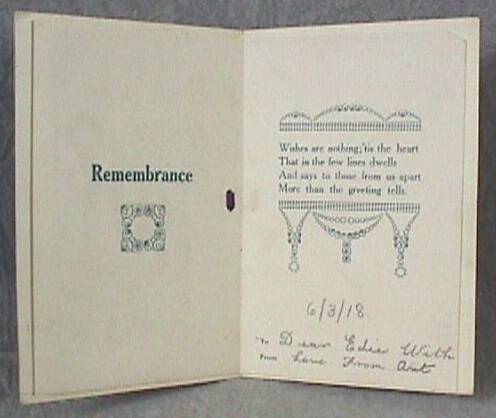 Remembrance
Wishes are nothing; 'tis the heart
That in the few lines dwells
And says to those from us apart
More than the greeting tells.
6/3/18
To Dear Edie With
From Love From Art